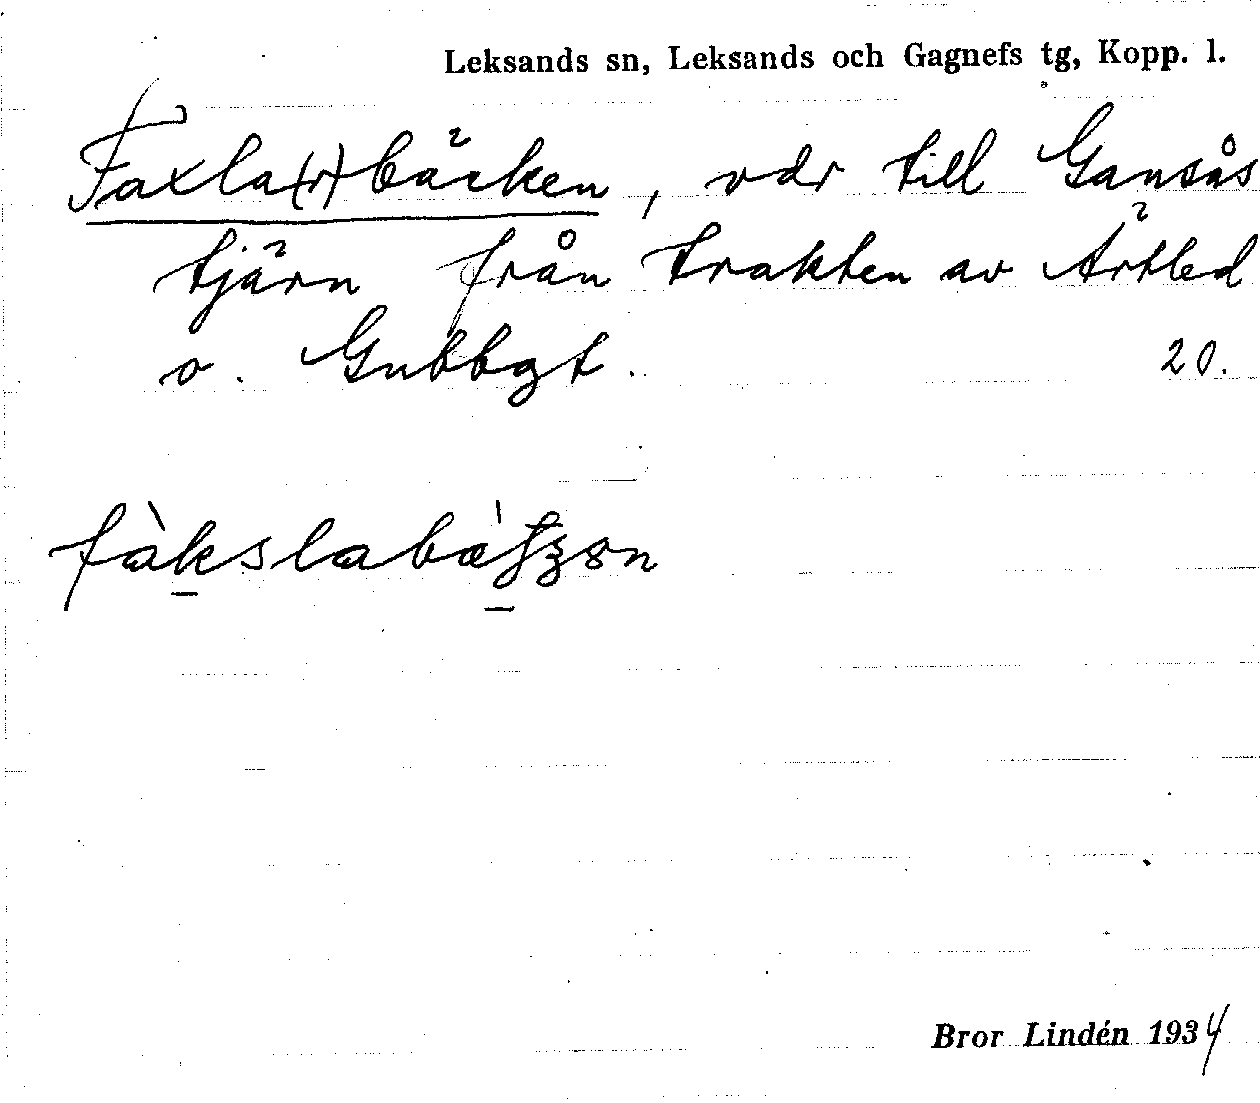 Leksands sn, Leksands och Gagnefs tg, Kopp. l.
Faxla(r)bäcken, vdr till Gansås
tjärn från trakten av Ärtled
o. Gubbgt. 20.
Bror Lindén 1934